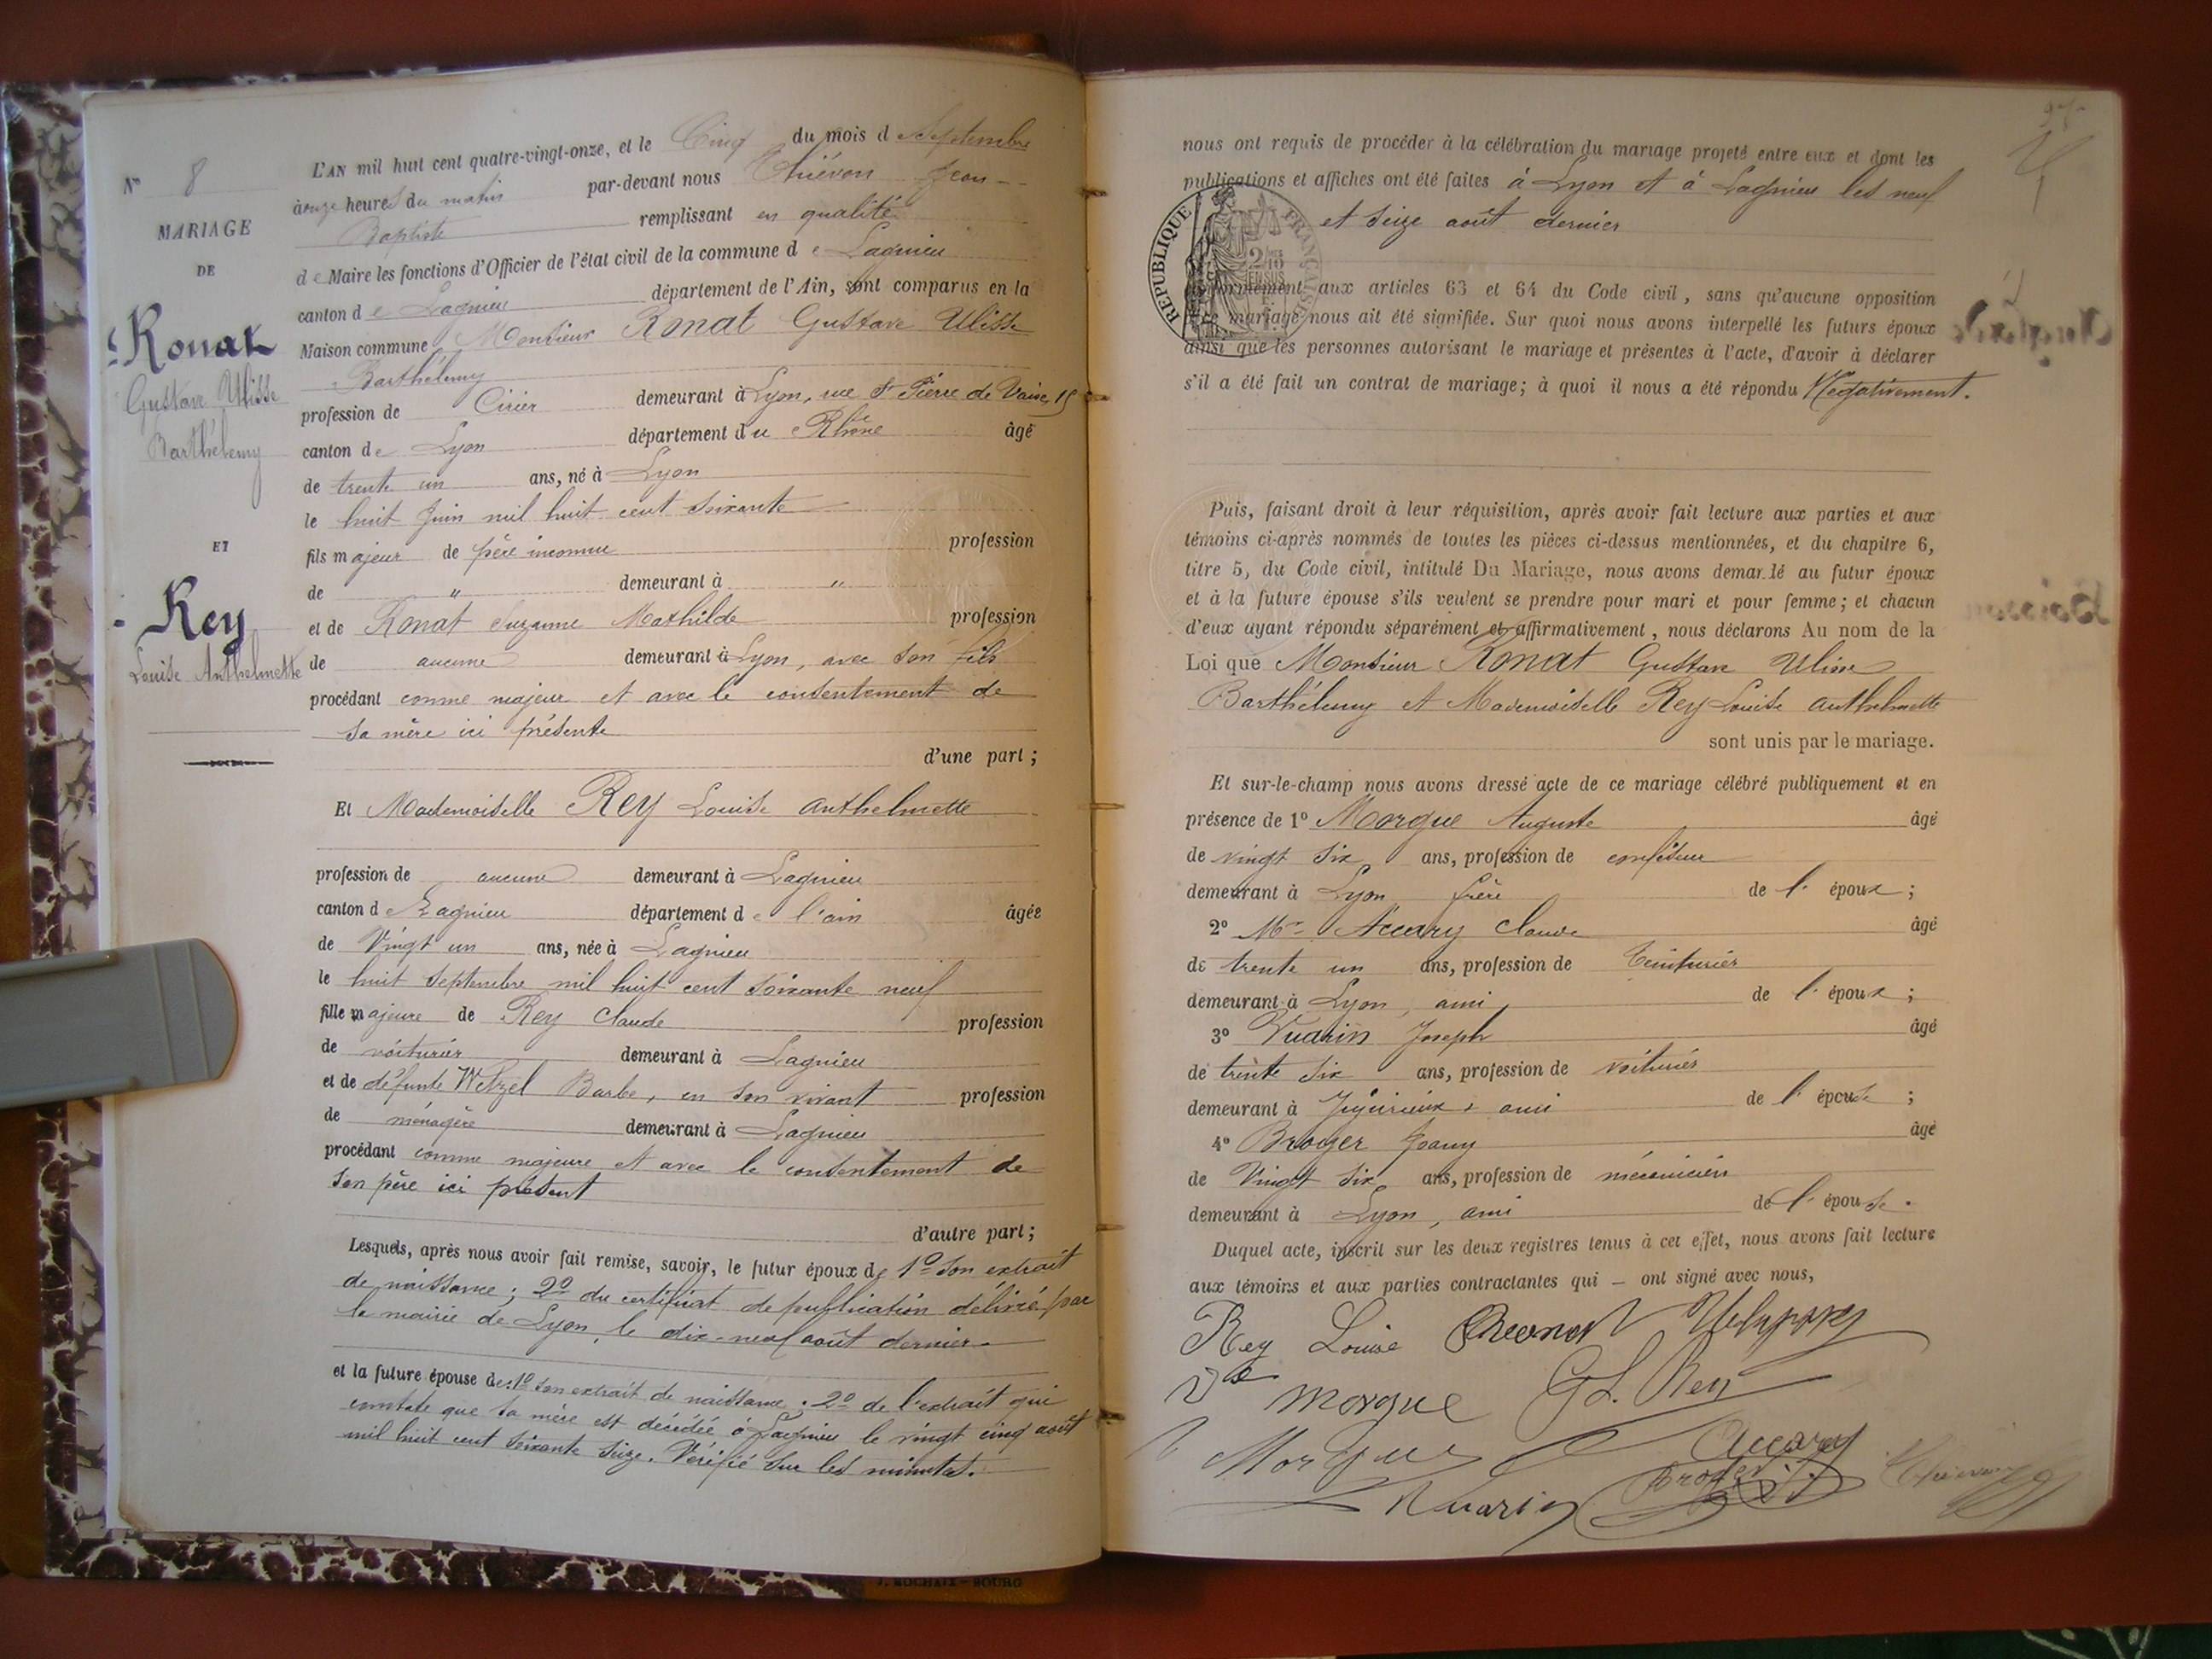 N° 8
MARIAGE
DE
Ronat
Gustave Ulisse
Barthélemy
ET
Rey
Louise Anthelmette
L'AN mil huit cent quatre-vingt-onze, et le Cinq du mois de Septembre
à onze heures du matin par-devant nous Thiévon Jean-
Baptiste remplissant en qualité
de Maire les fonctions d'Officier de l'état civil de la commune de Lagnieu
canton de Lagnieu département de l'Ain, sont comparus en la
Maison commune Monsieur Ronat Gustave Ulisse
Barthélemy
profession de Cirier demeurant à Lyon, rue St Pierre de Vaise, 15
canton de Lyon département du Rhône âgé
de trente un ans, né à Lyon
le huit Juin mil huit cent soixante
fils majeur de père inconnu profession
de " demeurant à "
et de Ronat Suzanne Mathilde profession
de aucune demeurant à Lyon, avec son fils
procédant comme majeur et avec le consentement de
sa mère ici présente
d'une part ;
Et Mademoiselle Rey Louise Anthelmette
profession de aucune demeurant à Lagnieu
canton de Lagnieu département de l'ain âgée
de Vingt un ans, née à Lagnieu
le huit Septembre mil huit cent soixante neuf
fille majeure de Rey Claude profession
de voiturier demeurant à Lagnieu
et de défunte Wetzel Barbe, en son vivant profession
de ménagère demeurant à Lagnieu
procédant comme majeure et avec le consentement de
son père ici présent
d'autre part ;
Lesquels, après nous avoir fait remise, savoir, le futur époux de 1° son extrait
de naissance ; 2° du certificat de publication délivré par
la mairie de Lyon, le dix-neuf août dernier
et la future épouse de : 1° son extrait de naissance ; 2° de l'extrait qui
constate que sa mère est décédée à Lagnieu le vingt cinq août
mil huit cent soixante seize. Vérifié sur les minutes.
J. ROCHAIX - BOURG
nous ont requis de procéder à la célébration du mariage projeté entre eux et dont les
publications et affiches ont été faites à Lyon et à Lagnieu les neuf
et seize août dernier
REPUBLIQUE FRANÇAISE
aux articles 63 et 64 du Code civil, sans qu'aucune opposition
mariage nous ait été signifiée. Sur quoi nous avons interpellé les futurs époux
ainsi que les personnes autorisant le mariage et présentes à l'acte, d'avoir à déclarer
s'il a été fait un contrat de mariage ; à quoi il nous a été répondu Négativement.
Puis, faisant droit à leur réquisition, après avoir fait lecture aux parties et aux
témoins ci-après nommés de toutes les pièces ci-dessus mentionnées, et du chapitre 6,
titre 5, du Code civil, intitulé Du Mariage, nous avons demandé au futur époux
et à la future épouse s'ils veulent se prendre pour mari et pour femme ; et chacun
d'eux ayant répondu séparément et affirmativement, nous déclarons Au nom de la
Loi que Monsieur Ronat Gustave Ulisse
Barthélemy et Mademoiselle Rey Louise Anthelmette
sont unis par le mariage.
Et sur-le-champ nous avons dressé acte de ce mariage célébré publiquement et en
présence de 1° Morgue Auguste âgé
de vingt six ans, profession de confiseur
demeurant à Lyon frère de l'époux ;
2° Mr Accary Claude âgé
de trente un ans, profession de teinturier
demeurant à Lyon, ami de l'époux ;
3° Vuarin Joseph âgé
de trente six ans, profession de voiturier
demeurant à Jujurieux, ami de l'épouse ;
4° Broyer Joany âgé
de Vingt six ans, profession de mécanicien
demeurant à Lyon, ami de l'épouse.
Duquel acte, inscrit sur les deux registres tenus à cet effet, nous avons fait lecture
aux témoins et aux parties contractantes qui — ont signé avec nous,
Rey Louise Ronat
Ve Morgue Rey
Morgue Accary
Vuarin Broyer Thiévon